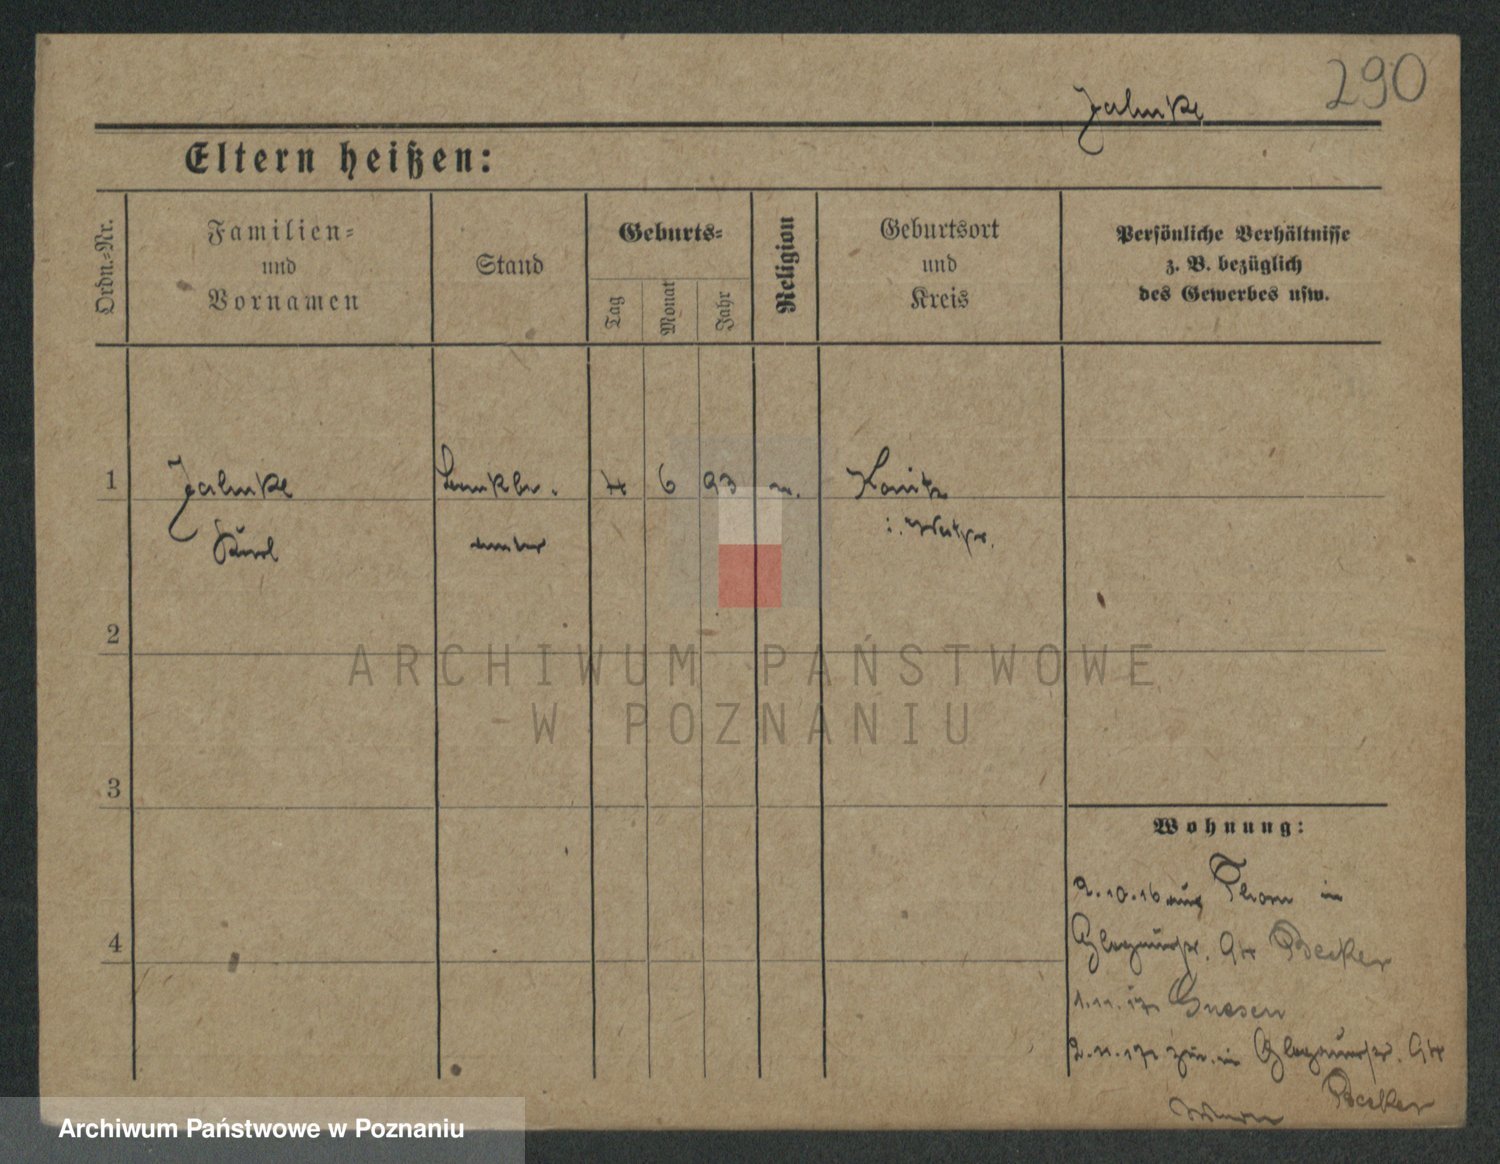 290
Jahnke
Eltern heißen:
Ordn.=Nr.
Familien=
und
Vornamen
Stand
Geburts=
Tag
Monat
Jahr
Religion
Geburtsort
und
Kreis
Persönliche Verhältnisse
z. B. bezüglich
des Gewerbes usw.
1
Jahnke
4 6 93
Konitz
i. Westpr.
2
ARCHIWUM PAŃSTWOWE
W POZNANIU
3
Wohnung:
2.10.16 aus Thorn in
Becker
4
1.11.17 Gnesen
2.11.17 zur. in
Becker
Archiwum Państwowe w Poznaniu